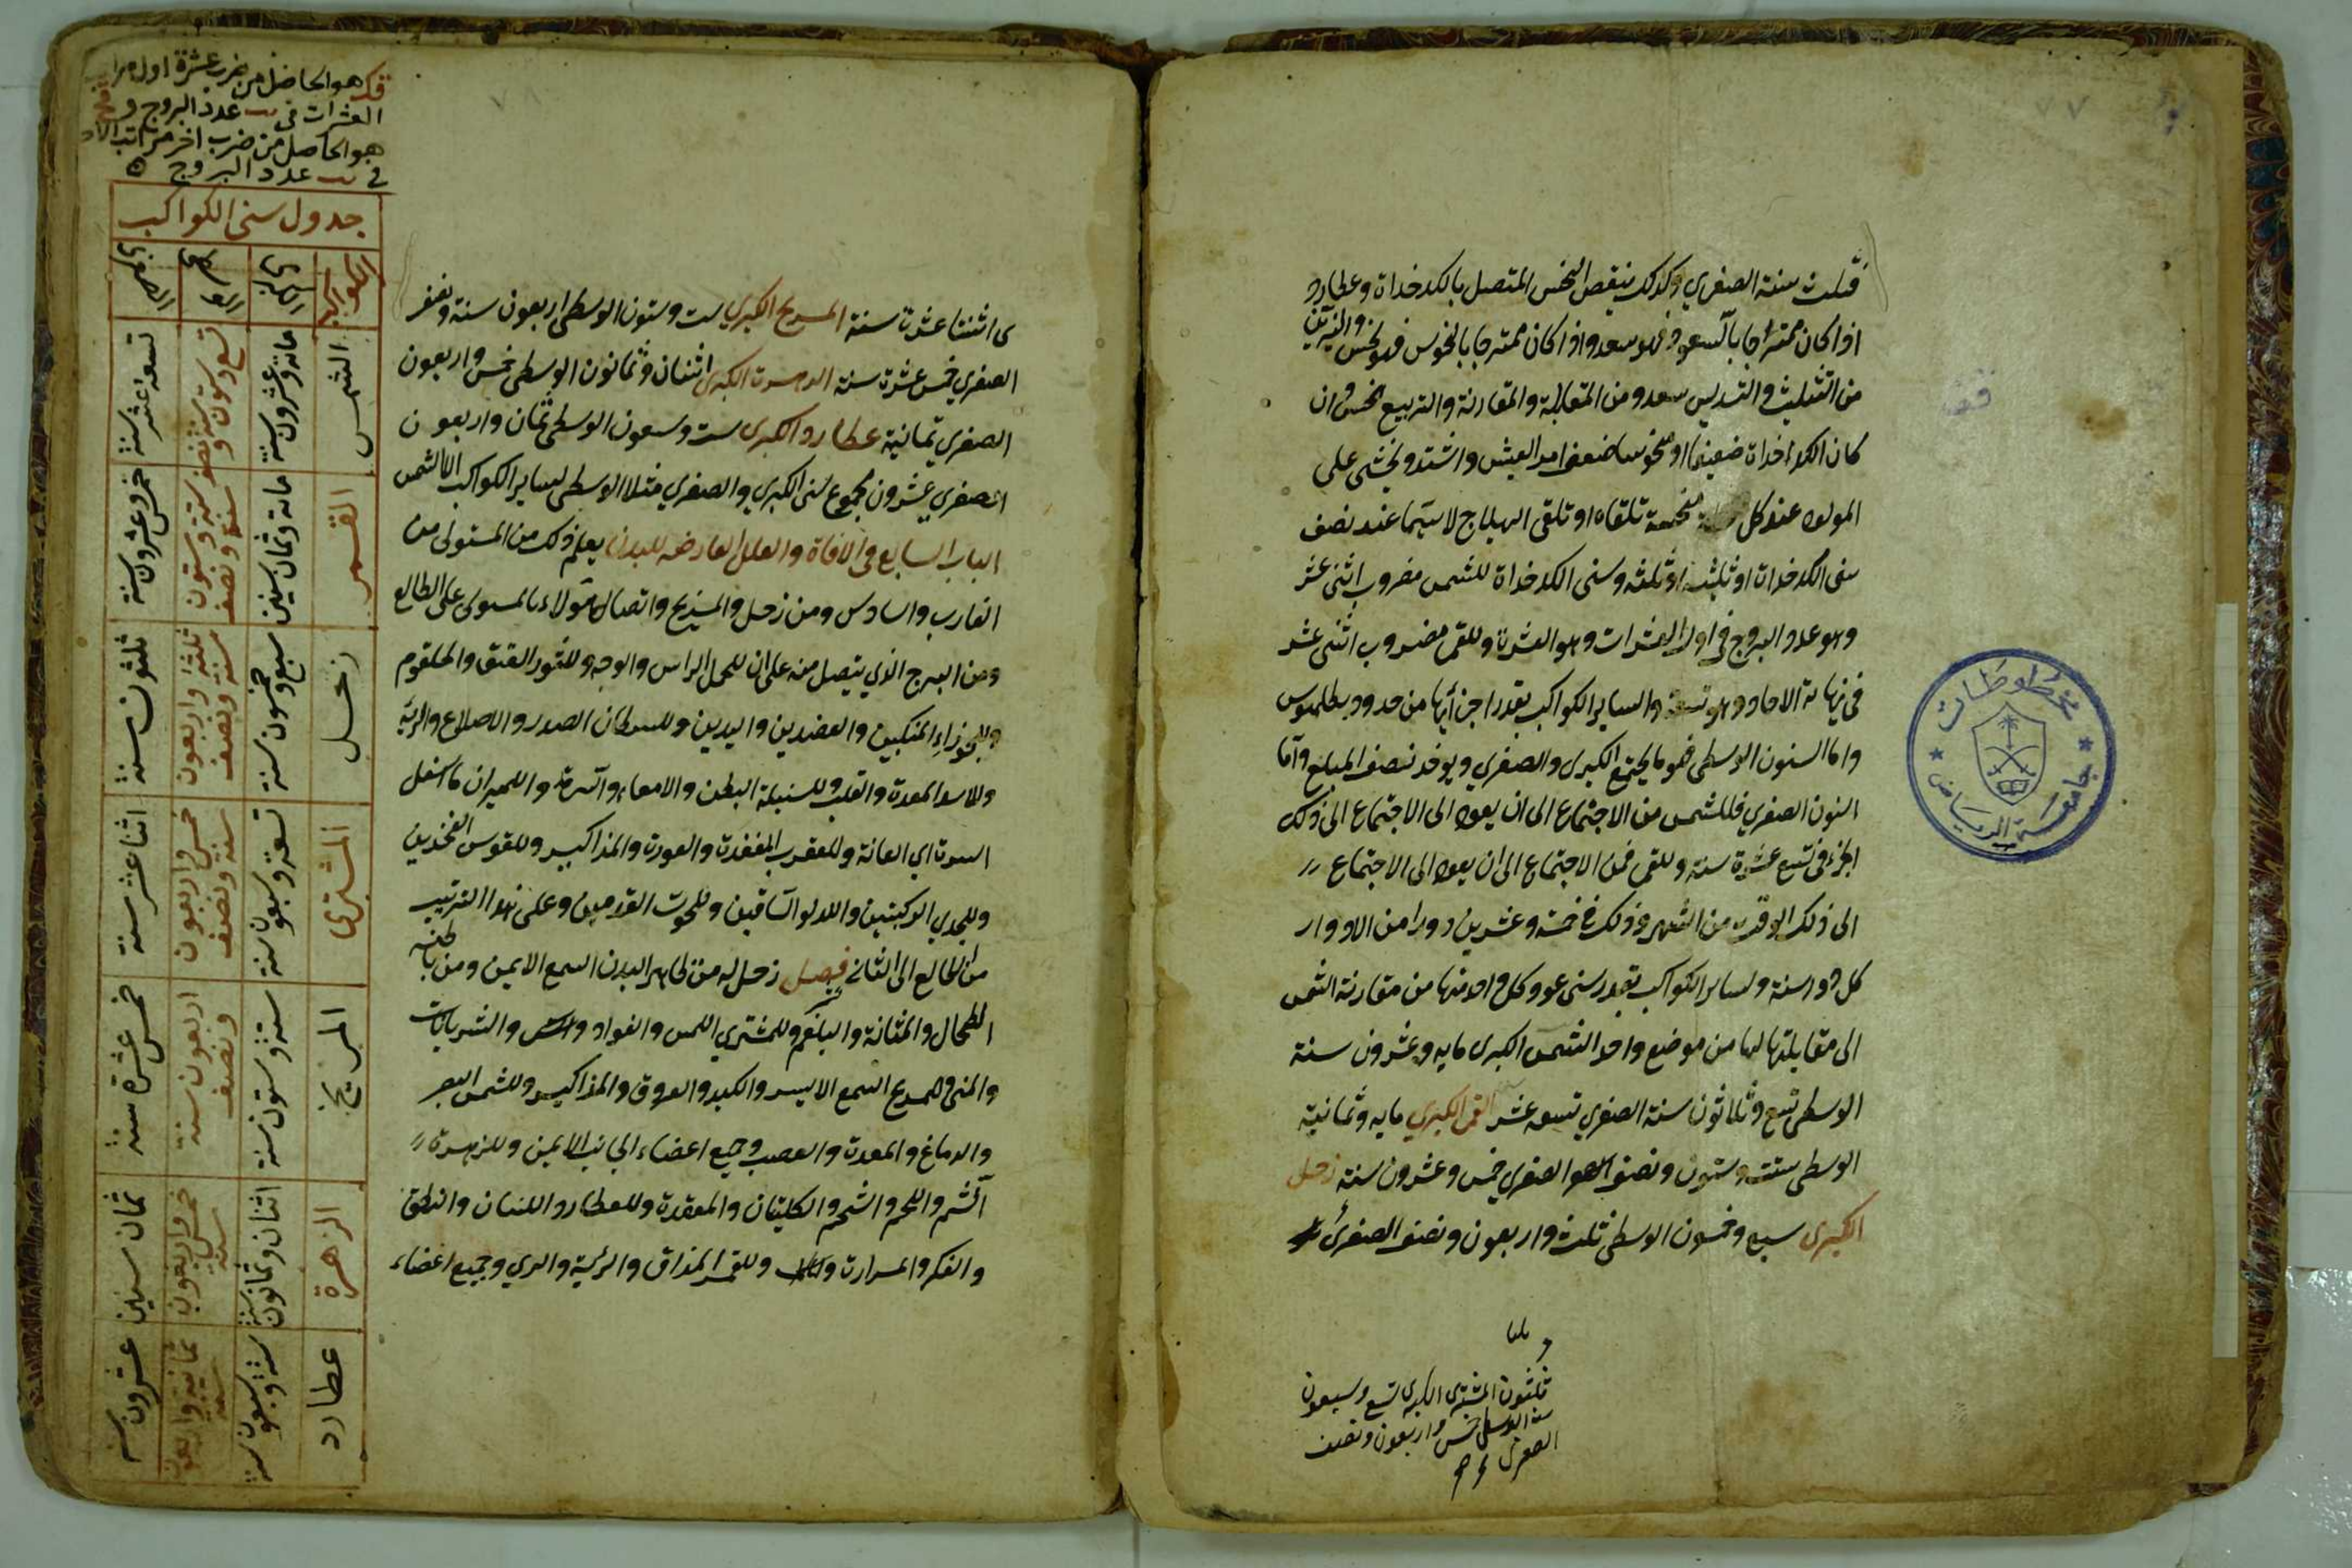 قبلت سنة الصغري وكذلك ينقص النحس المتصل بالكدخداة وعطارد
اذا كان ممتزجا بالسعود فهو سعد واذا كان ممتزجا بالنحوس فهو نحس والنيرين
من التثليث والتسديس سعد ومن المقابلة والمقارنة والتربيع نحس وان
كان الكدخداة ضعيفا او منحوسا ضعف امر العيش واشتد ويخشى على
المولود عند كل منحسة تلقاه او تلقى الهيلاج لا سيما عند نصف
سنى الكدخداة او ثلثيه او ثلثه وسنى الكدخداة للشمس مضروب اثنى عشر
وهو عدد البروج فى اول العشرات وهو العشرة وللقمر مضروب اثنى عشر
فى نهاية الاحاد وهو تسعة ولساير الكواكب بقدر اجزائها من حدود بطلميوس
واما السنون الوسطى فهو ما يجتمع الكبرى والصغري ويوخذ نصف المبلغ واما
السنون الصغري فللشمس من الاجتماع الى ان يعود الى الاجتماع الى ذلك
الجزء فى تسع عشرة سنة وللقمر فمن الاجتماع الى ان يعود الى الاجتماع
الى ذلك الوقت من الشهر وذلك فى خمسة وعشرين دورا من الادوار
كل دور سنة ولساير الكواكب بقدر سنى عود كل واحد منها من مقارنة الشمس
الى مقابلتها لها من موضع واحد الشمس الكبرى مايه وعشرون سنة
الوسطى تسع وثلاثون سنة الصغري تسعه عشر القمر الكبري مايه وثمانية
الوسطى ستت وستون ونصف الصغري خمس وعشرون سنة زحل
الكبرى سبع وخمسون الوسطى ثلث واربعون ونصف الصغرى
ثلثون المشترى الكبرى تسع وسبعون
سنة الوسطى خمس واربعون ونصف
الصغرى
مخطوطات
جامعة الرياض
قف
هو الحاصل من ضرب عشرة اول مراتب
العشرات فى يب عدد البروج و قح
هو الحاصل من ضرب اخر مراتب الاحاد
فى يب عدد البروج
جدول سنى الكواكب
الكواكب الكبرى الوسطى الصغرى
الشمس مائة وعشرون سنة تسع وستون سنة ونصف تسعة عشر سنة
القمر مائة وثمان سنين ستة وستون سنة ونصف خمس وعشرون سنة
زحل سبع وخمسون سنة ثلثة واربعون سنة ونصف ثلثون سنة
المشترى تسعة وسبعون سنة خمس واربعون سنة ونصف اثنا عشر سنة
المريخ ستة وستون سنة اربعون سنة ونصف خمس عشرة سنة
الزهرة اثنان وثمانون سنة خمس واربعون سنة ثمان سنين
عطارد ستة وسبعون سنة ثمانية واربعون سنة عشرون سنة
ى اثنتا عشرة سنة المريخ الكبري ست وستون الوسطى اربعون سنة ونصف
الصغري خمس عشرة سنة الزهرة الكبرى اثنان وثمانون الوسطى خمس واربعون
الصغري ثمانية عطارد الكبرى ست وسبعون الوسطى ثمان واربعون
الصغري عشرون مجموع سنى الكبري والصغري مثلا الوسطى لساير الكواكب الا الشمس
الباب السابع فى الافاة والعلل العارضه للبدن يعلم ذلك من المستولى من
الغارب والسادس ومن زحل والمريخ واتصال هولاء بالمستولى على الطالع
ومن البرج الذي يتصل منه على ان للحمل الراس والوجه وللثور العنق والحلقوم
وللجوزاء المنكبين والعضدين واليدين وللسرطان الصدر والاضلاع والرية
وللاسد المعدة والقلب وللسنبلة البطن والامعاء والسرة والميزان ما اسفل
السرة اي العانة وللعقرب المقعدة والعورة والمذاكير وللقوس الفخذين
وللجدي الركبتين والدلو الساقين وللحوت القدمين وعلى هذا الترتيب
من الطالع الى الثانى فصل زحل له من ظاهر البدن السمع الايمن ومن باطنه
الطحال والمثانة والبلغم وللمشتري اللمس والفواد والشريانات
والمنى وللمريخ السمع الايسر والكبد والعروق والمذاكير وللشمس البصر
والدماغ والمعدة والعصب وجميع اعضاء الجانب الايمن وللزهرة
الشم واللحم والشحم والكليتان والمقعدة وللعطارد اللسان والنطق
والفكر والمرارة وللقمر المذاق والرئية والمري وجميع اعضاء